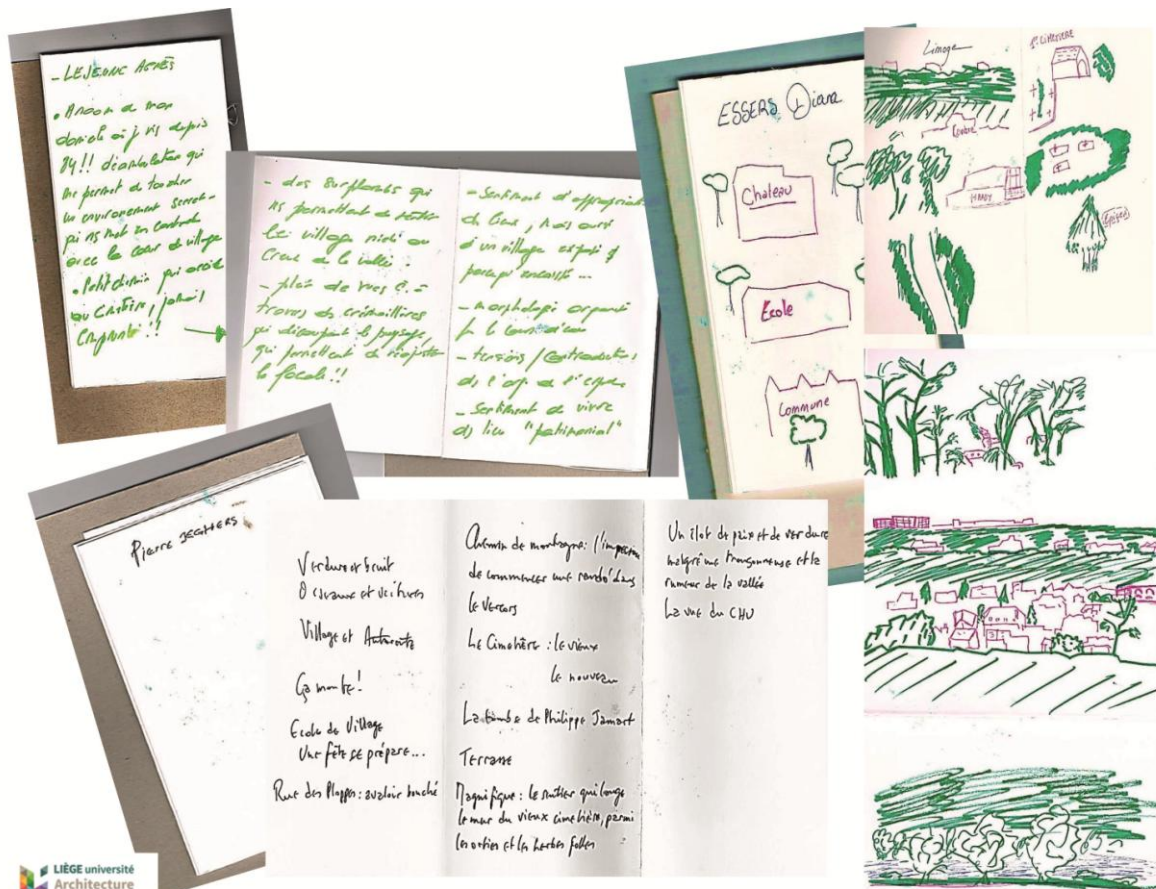 - LEJEUNE AGNÈS
domicile où j vis depuis
84!! déambulation qui
me permet de toucher
un environnement
qui ns met en
avec le cœur de village
• Petit chemin qui
au Cimetière, jamais
Emprunté!!
- des surplombs qui
ns permettent de
le village niché au
Creux de la vallée.
- plein de vues
travers des crémaillères
qui découpent le paysage,
qui permettent de
la focale!!
- Sentiment d'appropriation
de lieux, mais aussi
d'un village
perçu encaissé...
- morphologie
p. le cours d'eau
- tensions / contradictions
- Sentiment de vivre
ds lieu "patrimonial"
ESSERS Diana
Chateau
Ecole
Commune
Limoge
Pierre JEGHERS
Verdure et bruit
Oiseaux et voitures
Village et Autoroute
Ça monte!
Ecole de Village
Une fête se prépare...
Rue des Ploppes: avaloir bouché
Chemin de montagne: l'impression
de commencer une rando dans
le Vercors
Le Cimetière: le vieux
le nouveau
La tombe de Philippe Jamart
Terrasse
Magnifique: le sentier qui longe
le mur du vieux cimetière, parmi
les orties et les herbes folles
Un îlot de paix et de verdure
malgré une tronçonneuse et la
rumeur de la vallée
La vue du CHU
LIÈGE université
Architecture